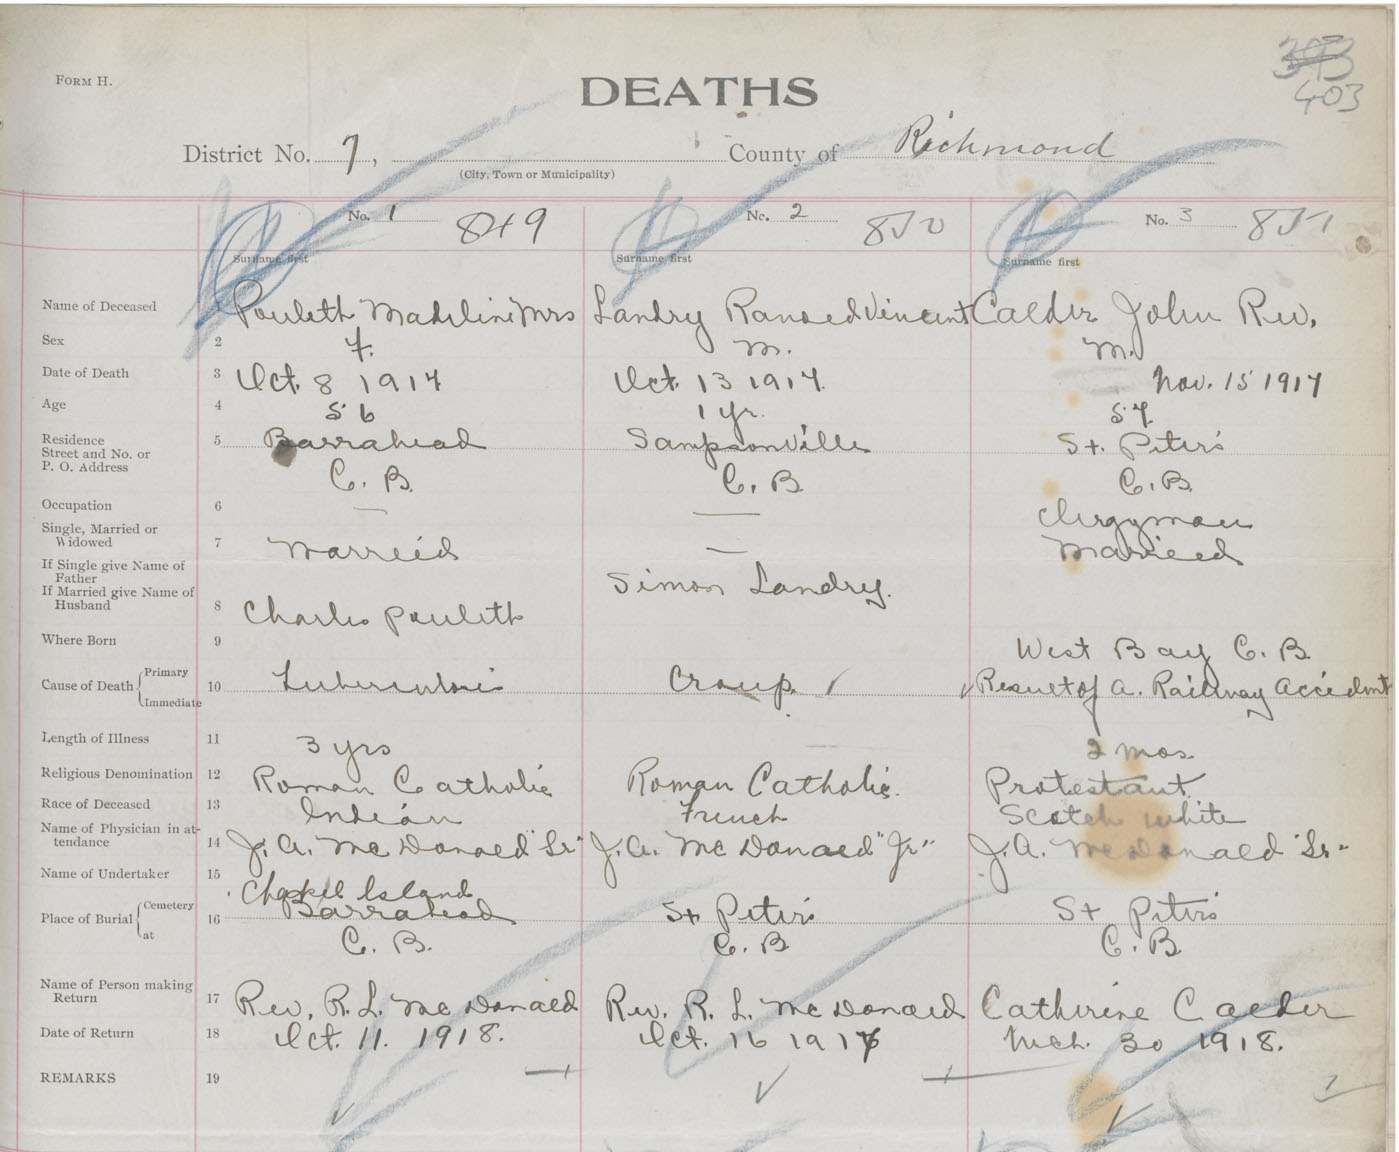 393
403
FORM H.
DEATHS
District No. 7, County of Richmond
(City, Town or Municipality)
No. 1 849 No. 2 850 No. 3 851
Surname first Surname first Surname first
Name of Deceased 1 Pouleth Madeline Mrs Landry Vincent Calder John Rev.
Sex 2 F. M. M.
Date of Death 3 Oct. 8 1917 Oct. 13 1917. Nov. 15 1917
Age 4 56 1 yr. 57
Residence 5 Barrahead Sampsonville St. Peter's
Street and No. or
P. O. Address C. B. C. B. C. B.
Occupation 6 — — Clergyman
Single, Married or
Widowed 7 Marreid — Marrieed
If Single give Name of
Father Simon Landry.
If Married give Name of
Husband 8 Charles Pouleth
Where Born 9 West Bay C. B.
Cause of Death { Primary
Immediate 10 Tuberculosis Croup. Result of a. Railway Accident
Length of Illness 11 3 yrs 2 mos.
Religious Denomination 12 Roman Catholic Roman Catholic. Protestant.
Race of Deceased 13 Indian French Scotch white
Name of Physician in at-
tendance 14 J. A. McDonald "Sr" J. A. McDonald "Jr" J. A. McDonald "Sr"
Name of Undertaker 15
Chapel Island
Place of Burial { Cemetery
at 16 Barrahead St Peter's St Peter's
C. B. C. B. C. B.
Name of Person making
Return 17 Rev. R. L. McDonald Rev. R. L. McDonald Catherine Calder
Date of Return 18 Oct. 11. 1918. Oct. 16 1917 Mch. 30 1918.
REMARKS 19